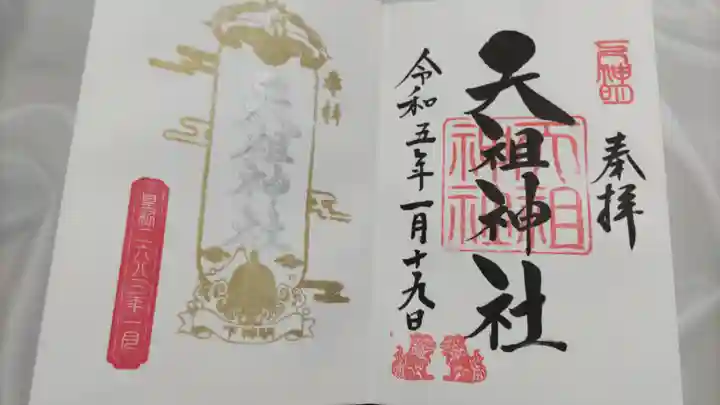 奉拝
天祖神社
天祖神社
令和五年一月十九日
奉拝
天祖神社
皇紀二六八三年一月
下神明